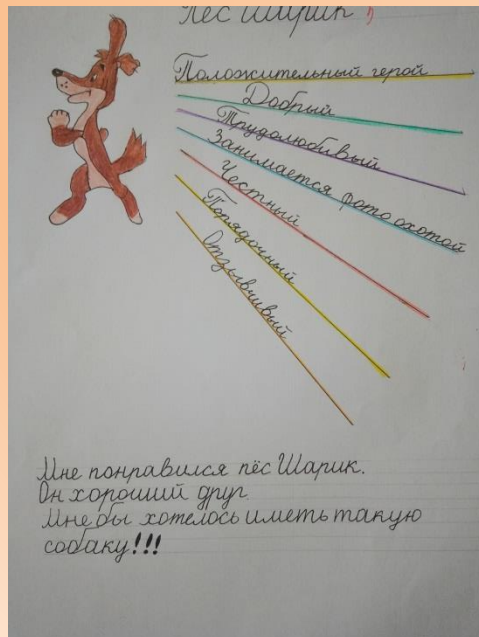 Пёс Шарик
Положительный герой
Добрый
Трудолюбивый
Занимается фотоохотой
Честный
Порядочный
Отзывчивый
Мне понравился пёс Шарик.
Он хороший друг.
Мне бы хотелось иметь такую
собаку!!!